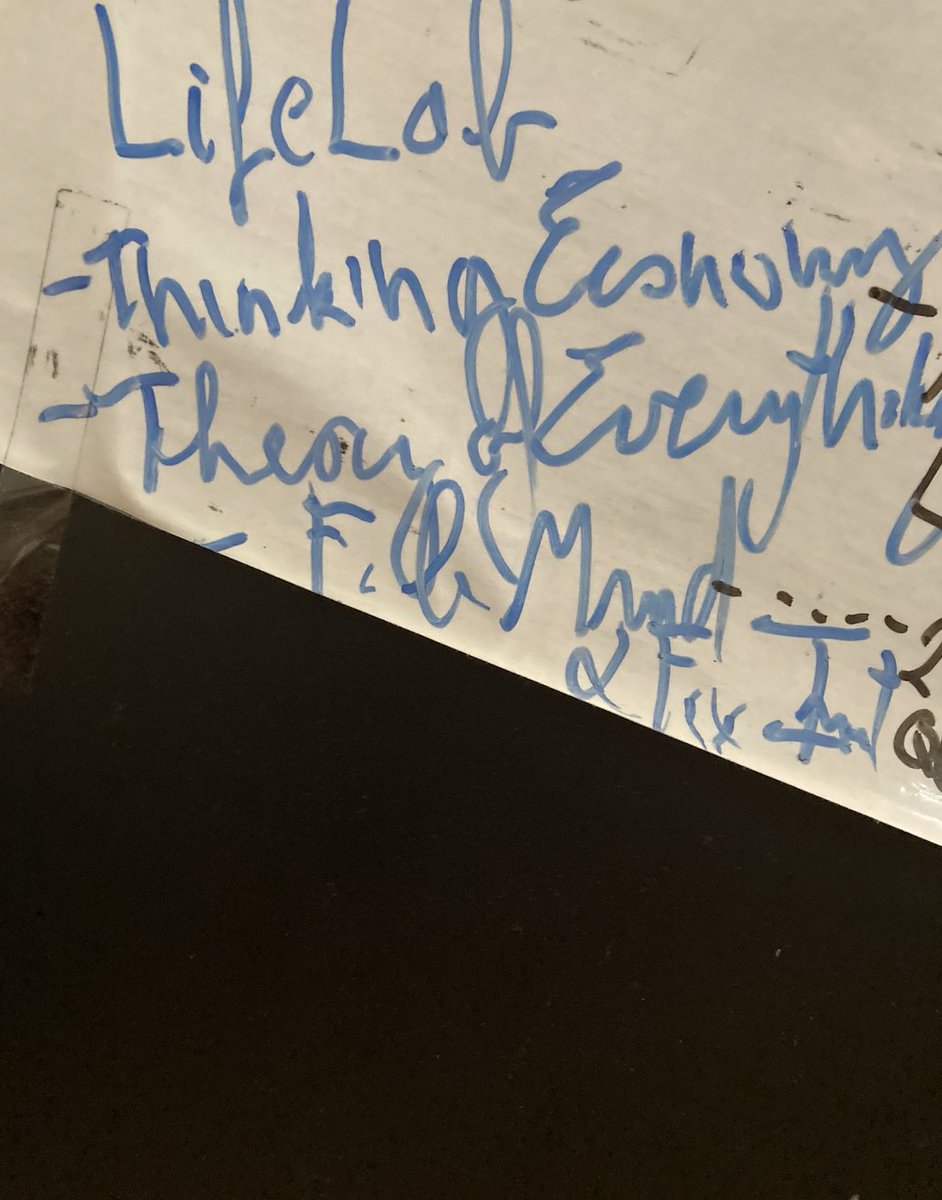 LifeLab
- Thinking Economy
- Theory of Everything
- F. & Mind
& Fix It